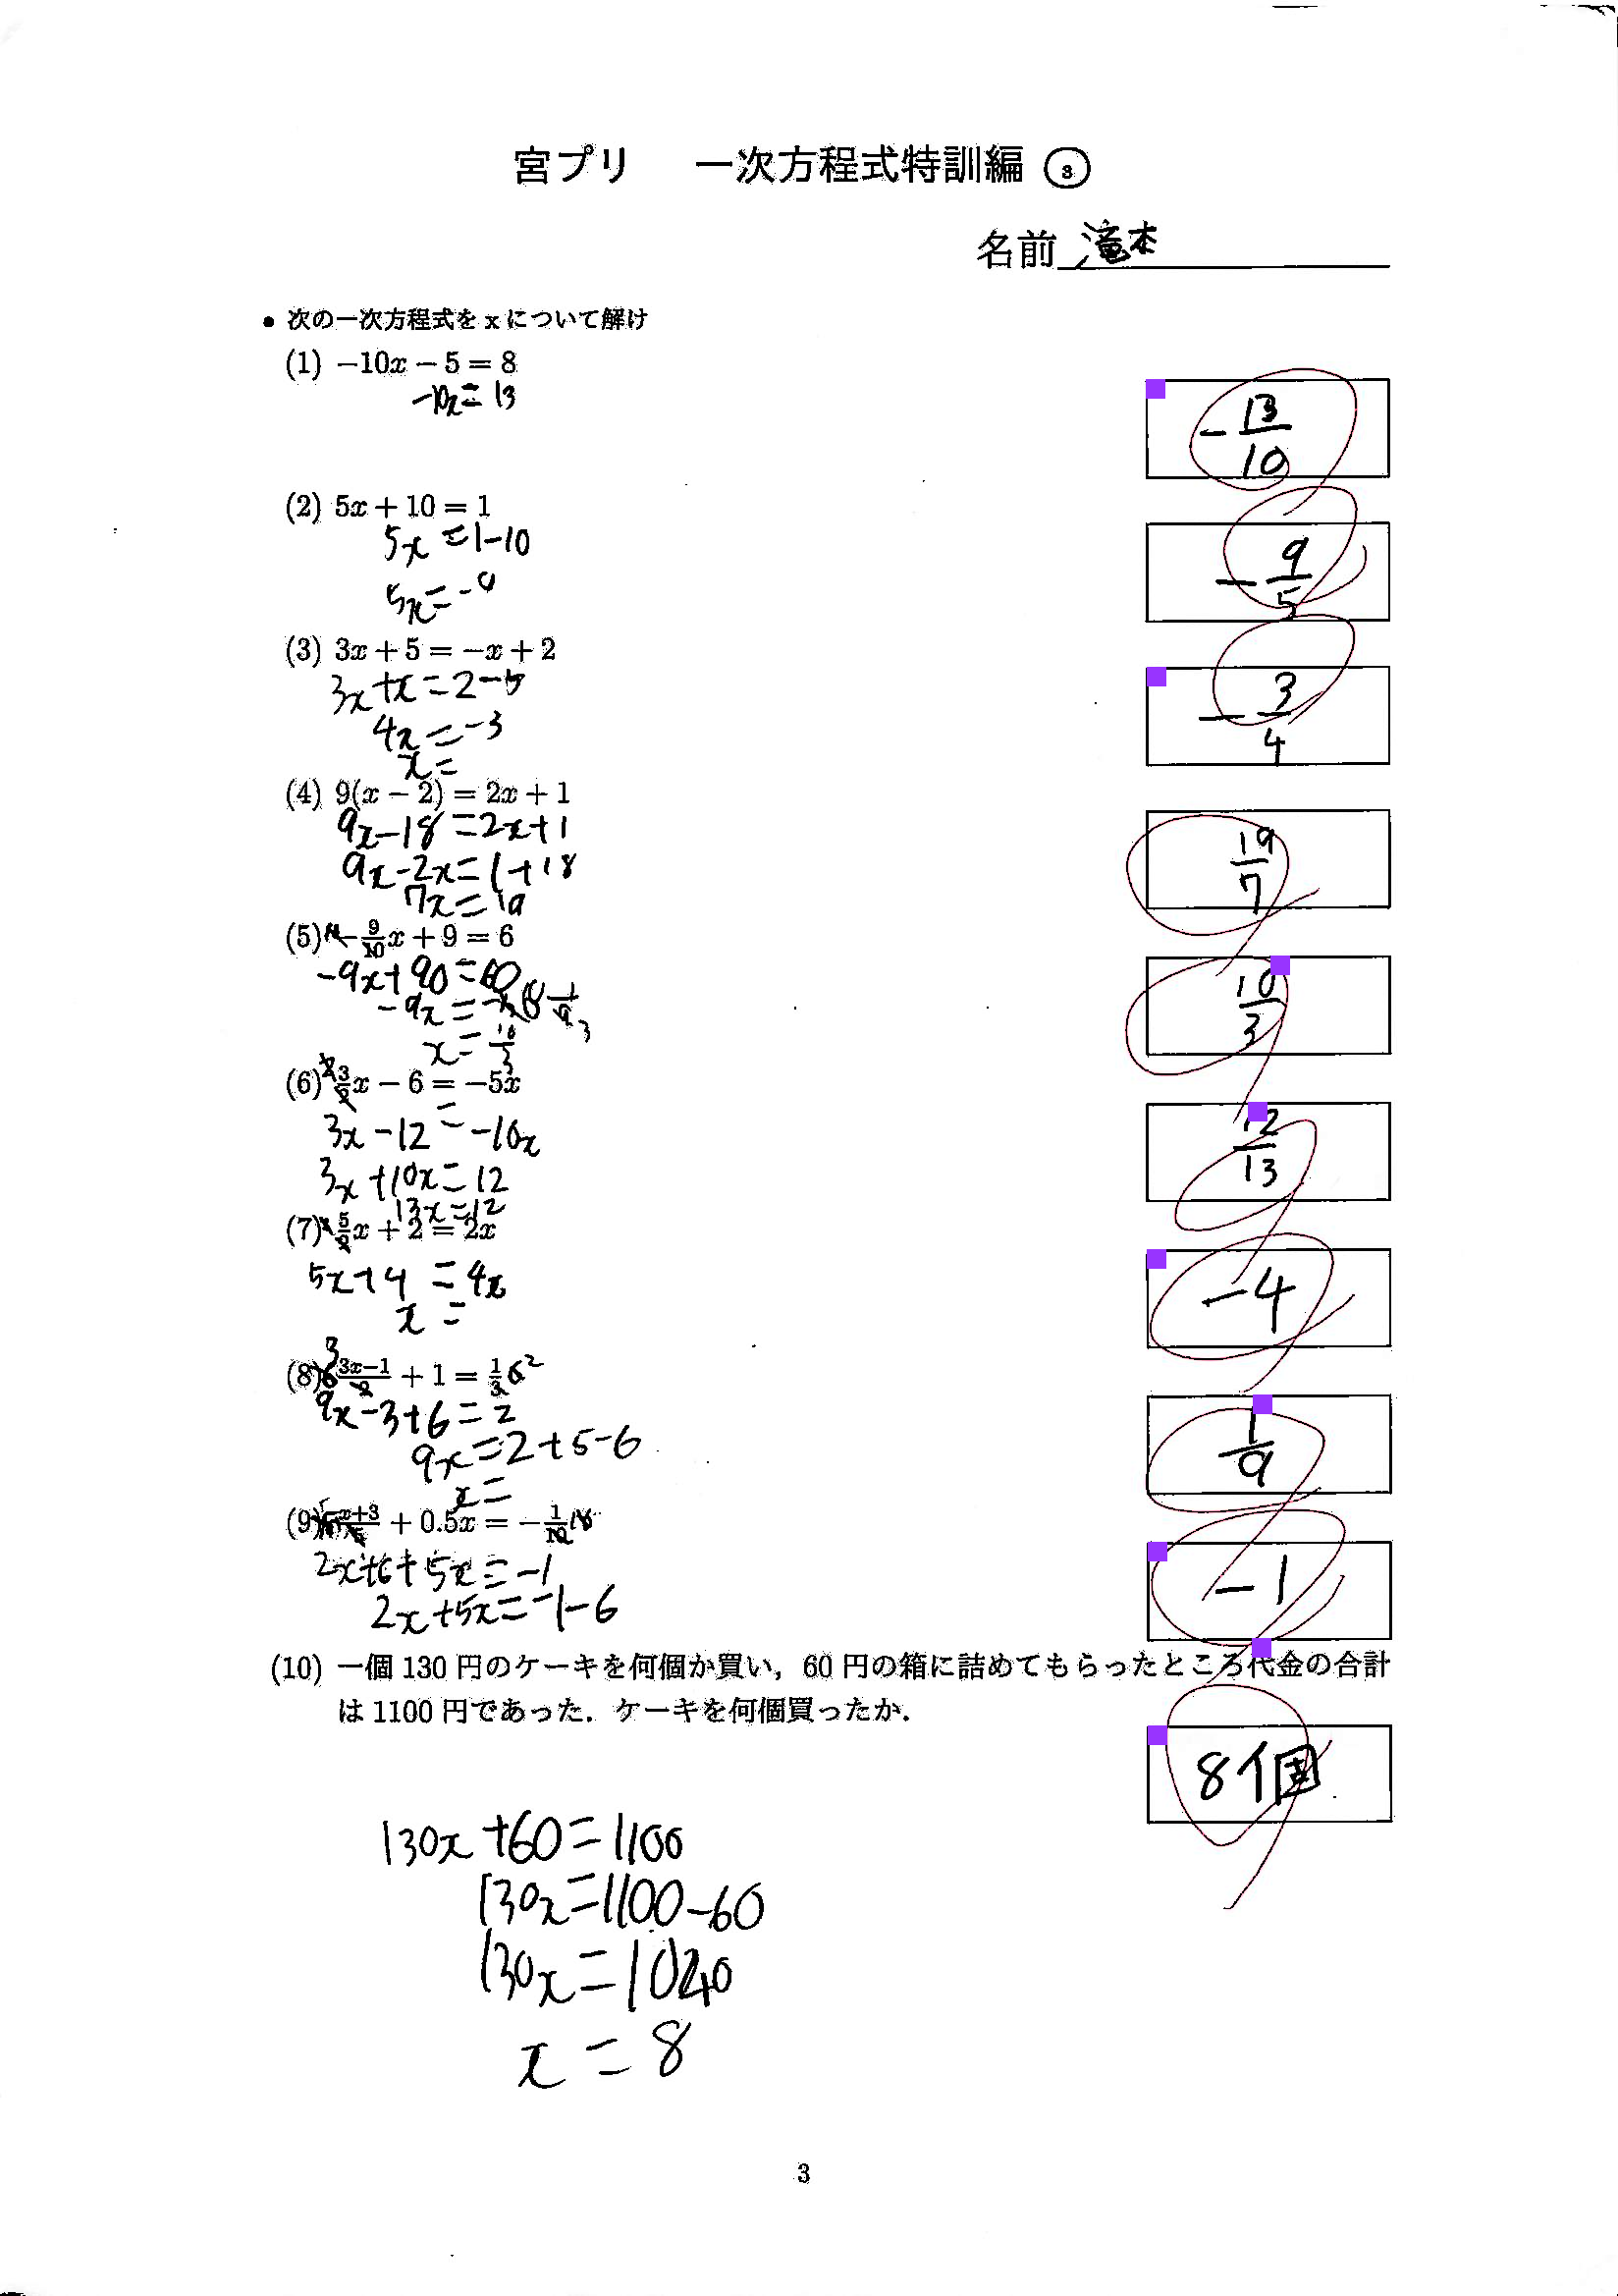 宮プリ 一次方程式特訓編 ③
名前 滝本
• 次の一次方程式を x について解け
(1) −10x − 5 = 8
-10x = 13
-13/10
(2) 5x + 10 = 1
5x = 1-10
5x = -9
-9/5
(3) 3x + 5 = −x + 2
3x+x=2-5
4x = -3
x=
-3/4
(4) 9(x − 2) = 2x + 1
9x-18=2x+1
9x-2x=1+18
7x=19
19/7
(5) −9/10x + 9 = 6
-9x+90=60
-9x =
x = 10/3
10/3
(6) 3/2x − 6 = −5x
3x-12 = -10x
3x+10x=12
13x=12
12/13
(7) 5/2x + 2 = 2x
5x+4 = 4x
x =
-4
(8) 3x−1/2 + 1 = 1/3
9x-3+6=2
9x=2+5-6
x=
1/9
(9) x+3/5 + 0.5x = −1/10
2x+6+5x=-1
2x+5x=-1-6
-1
(10) 一個 130 円のケーキを何個か買い，60 円の箱に詰めてもらったところ代金の合計
は 1100 円であった．ケーキを何個買ったか．
8個
130x+60=1100
130x=1100-60
130x=1040
x = 8
3